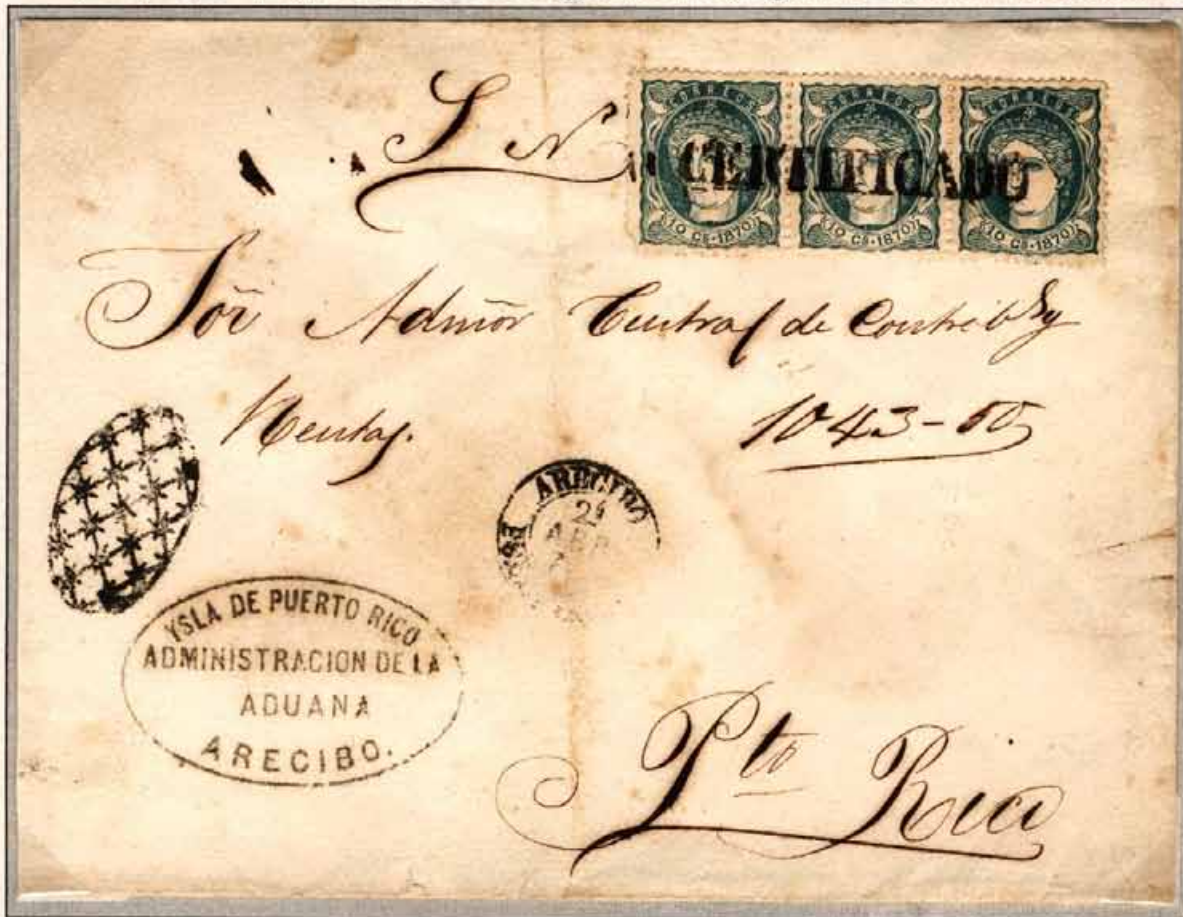 S N
CERTIFICADO
CORREOS CORREOS CORREOS
10 Cs. 1870 10 Cs. 1870 10 Cs. 1870
Sōr Admōr Central de Contribs y
Rentas.
1043-50
ARECIBO
21
ABR
YSLA DE PUERTO RICO
ADMINISTRACION DE LA
ADUANA
ARECIBO.
Pto Rico